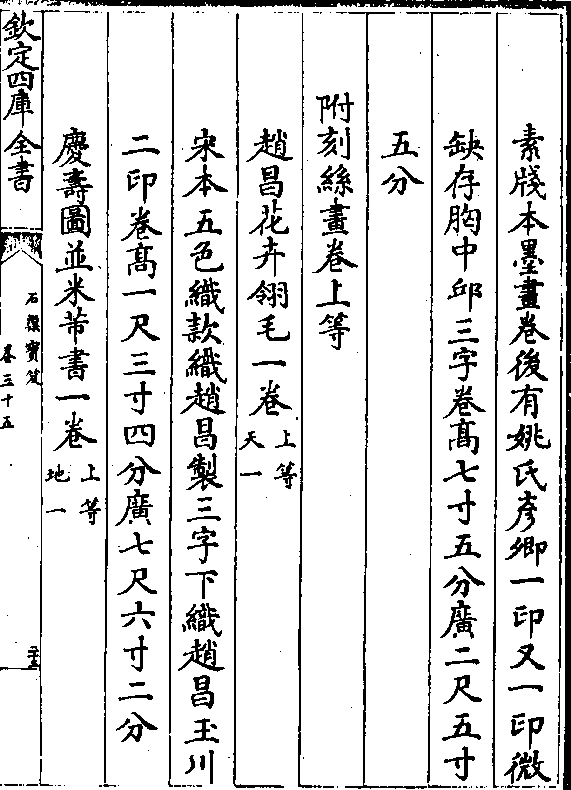 素牋本墨畫卷後有姚氏彥卿一印又一印微
缺存胸中邱三字卷髙七寸五分廣二尺五寸
五分
附刻絲畫卷上等
趙昌花卉翎毛一卷 上等 天一
宋本五色織款織趙昌製三字下織趙昌玉川
二印卷髙一尺三寸四分廣七尺六寸二分
慶壽圖並米芾書一卷 上等 地一
欽定四庫全書
石渠寳笈
卷三十五